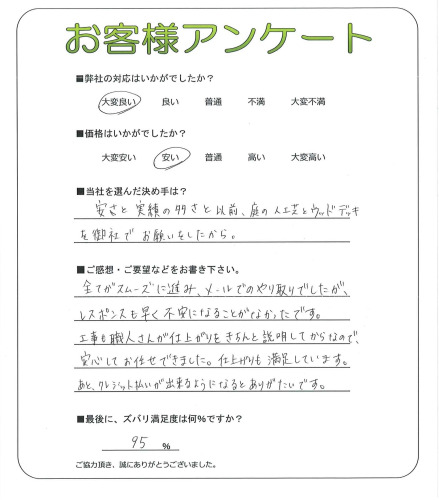 お客様アンケート
■弊社の対応はいかがでしたか？
大変良い 良い 普通 不満 大変不満
■価格はいかがでしたか？
大変安い 安い 普通 高い 大変高い
■当社を選んだ決め手は？
安さと実績の多さと以前、庭の人工芝とウッドデッキ
を御社でお願いをしたから。
■ご感想・ご要望などをお書き下さい。
全てがスムーズに進み、メールでのやり取りでしたが、
レスポンスも早く不安になることがなかったです。
工事も職人さんが仕上がりをきちんと説明してからなので、
安心してお任せできました。仕上がりも満足しています。
あと、クレジット払いが出来るようになるとありがたいです。
■最後に、ズバリ満足度は何%ですか？
95 %
ご協力頂き、誠にありがとうございました。